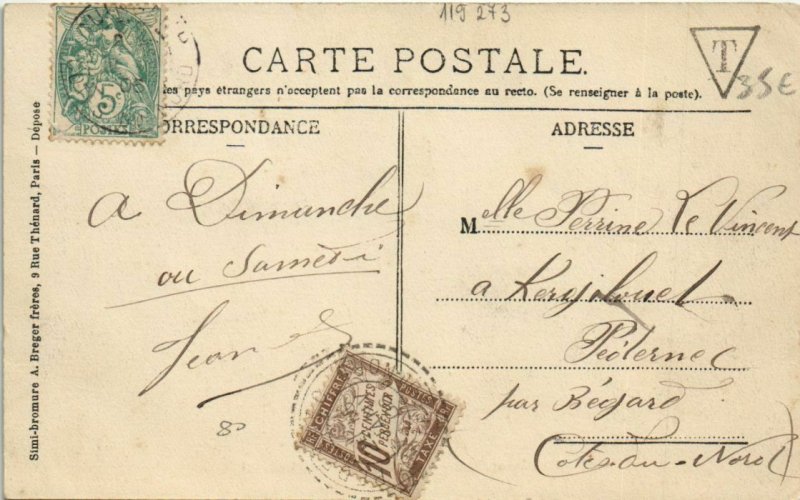 119 273
T
35€
CARTE POSTALE.
les pays étrangers n'acceptent pas la correspondance au recto. (Se renseigner à la poste).
ORRESPONDANCE
ADRESSE
5c
POSTES
a Dimanche
ou Samedi
Jean
80
Melle Perrine Le Vincent
a
Pédernec
par Bégard
Côtes-du-Nord
CHIFFRE
POSTES
10 CENTIMES
A PERCEVOIR
TAXE
Simi-bromure A. Breger frères, 9 Rue Thénard, Paris — Dépose